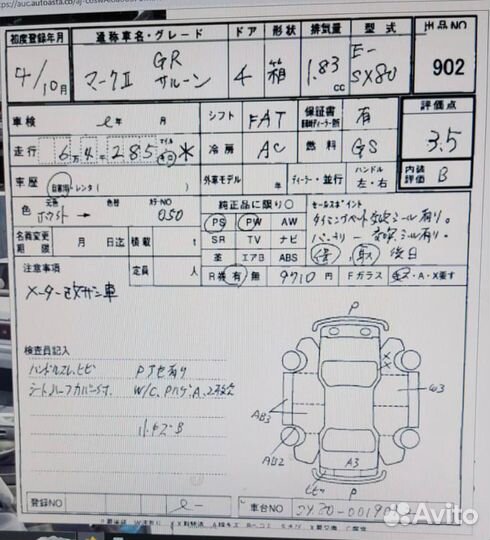 初度登録年月 通称車名・グレード ドア 形状 排気量 型式 出品NO
4/10月 マークII GR サルーン 4 箱 1.83cc E-SX80 902
車検 年 月 シフト FAT 保証書 有 評価点
走行 6万4千285 マイル ＊ 冷房 AC 燃料 GS 3.5
車歴 自家用・レンタ( ) 外車モデル 年 ディーラー・並行 ハンドル 左・右 内装評価 B
色 元色 ホワイト → 色替 カラーNO 050
純正品に限り○ セールスポイント
PS PW AW タイミングベルト交換シール有り。
名義変更期限 月 日迄 積載 t SR TV ナビ バッテリー交換シール有り。
革 エアB ABS 後日
注意事項 定員 人 R券 有 無 9710円 Fガラス ・A・X要す
メーター改ザン車
P
検査員記入
ハンドルスレ、ヒビ Pアセ有り
シートハーフカバー付 W/C、PハゲA、
小キズB
W3
AB3
AB2
A3
ヒビ P
登録NO 車台NO SX80-0019
Avito